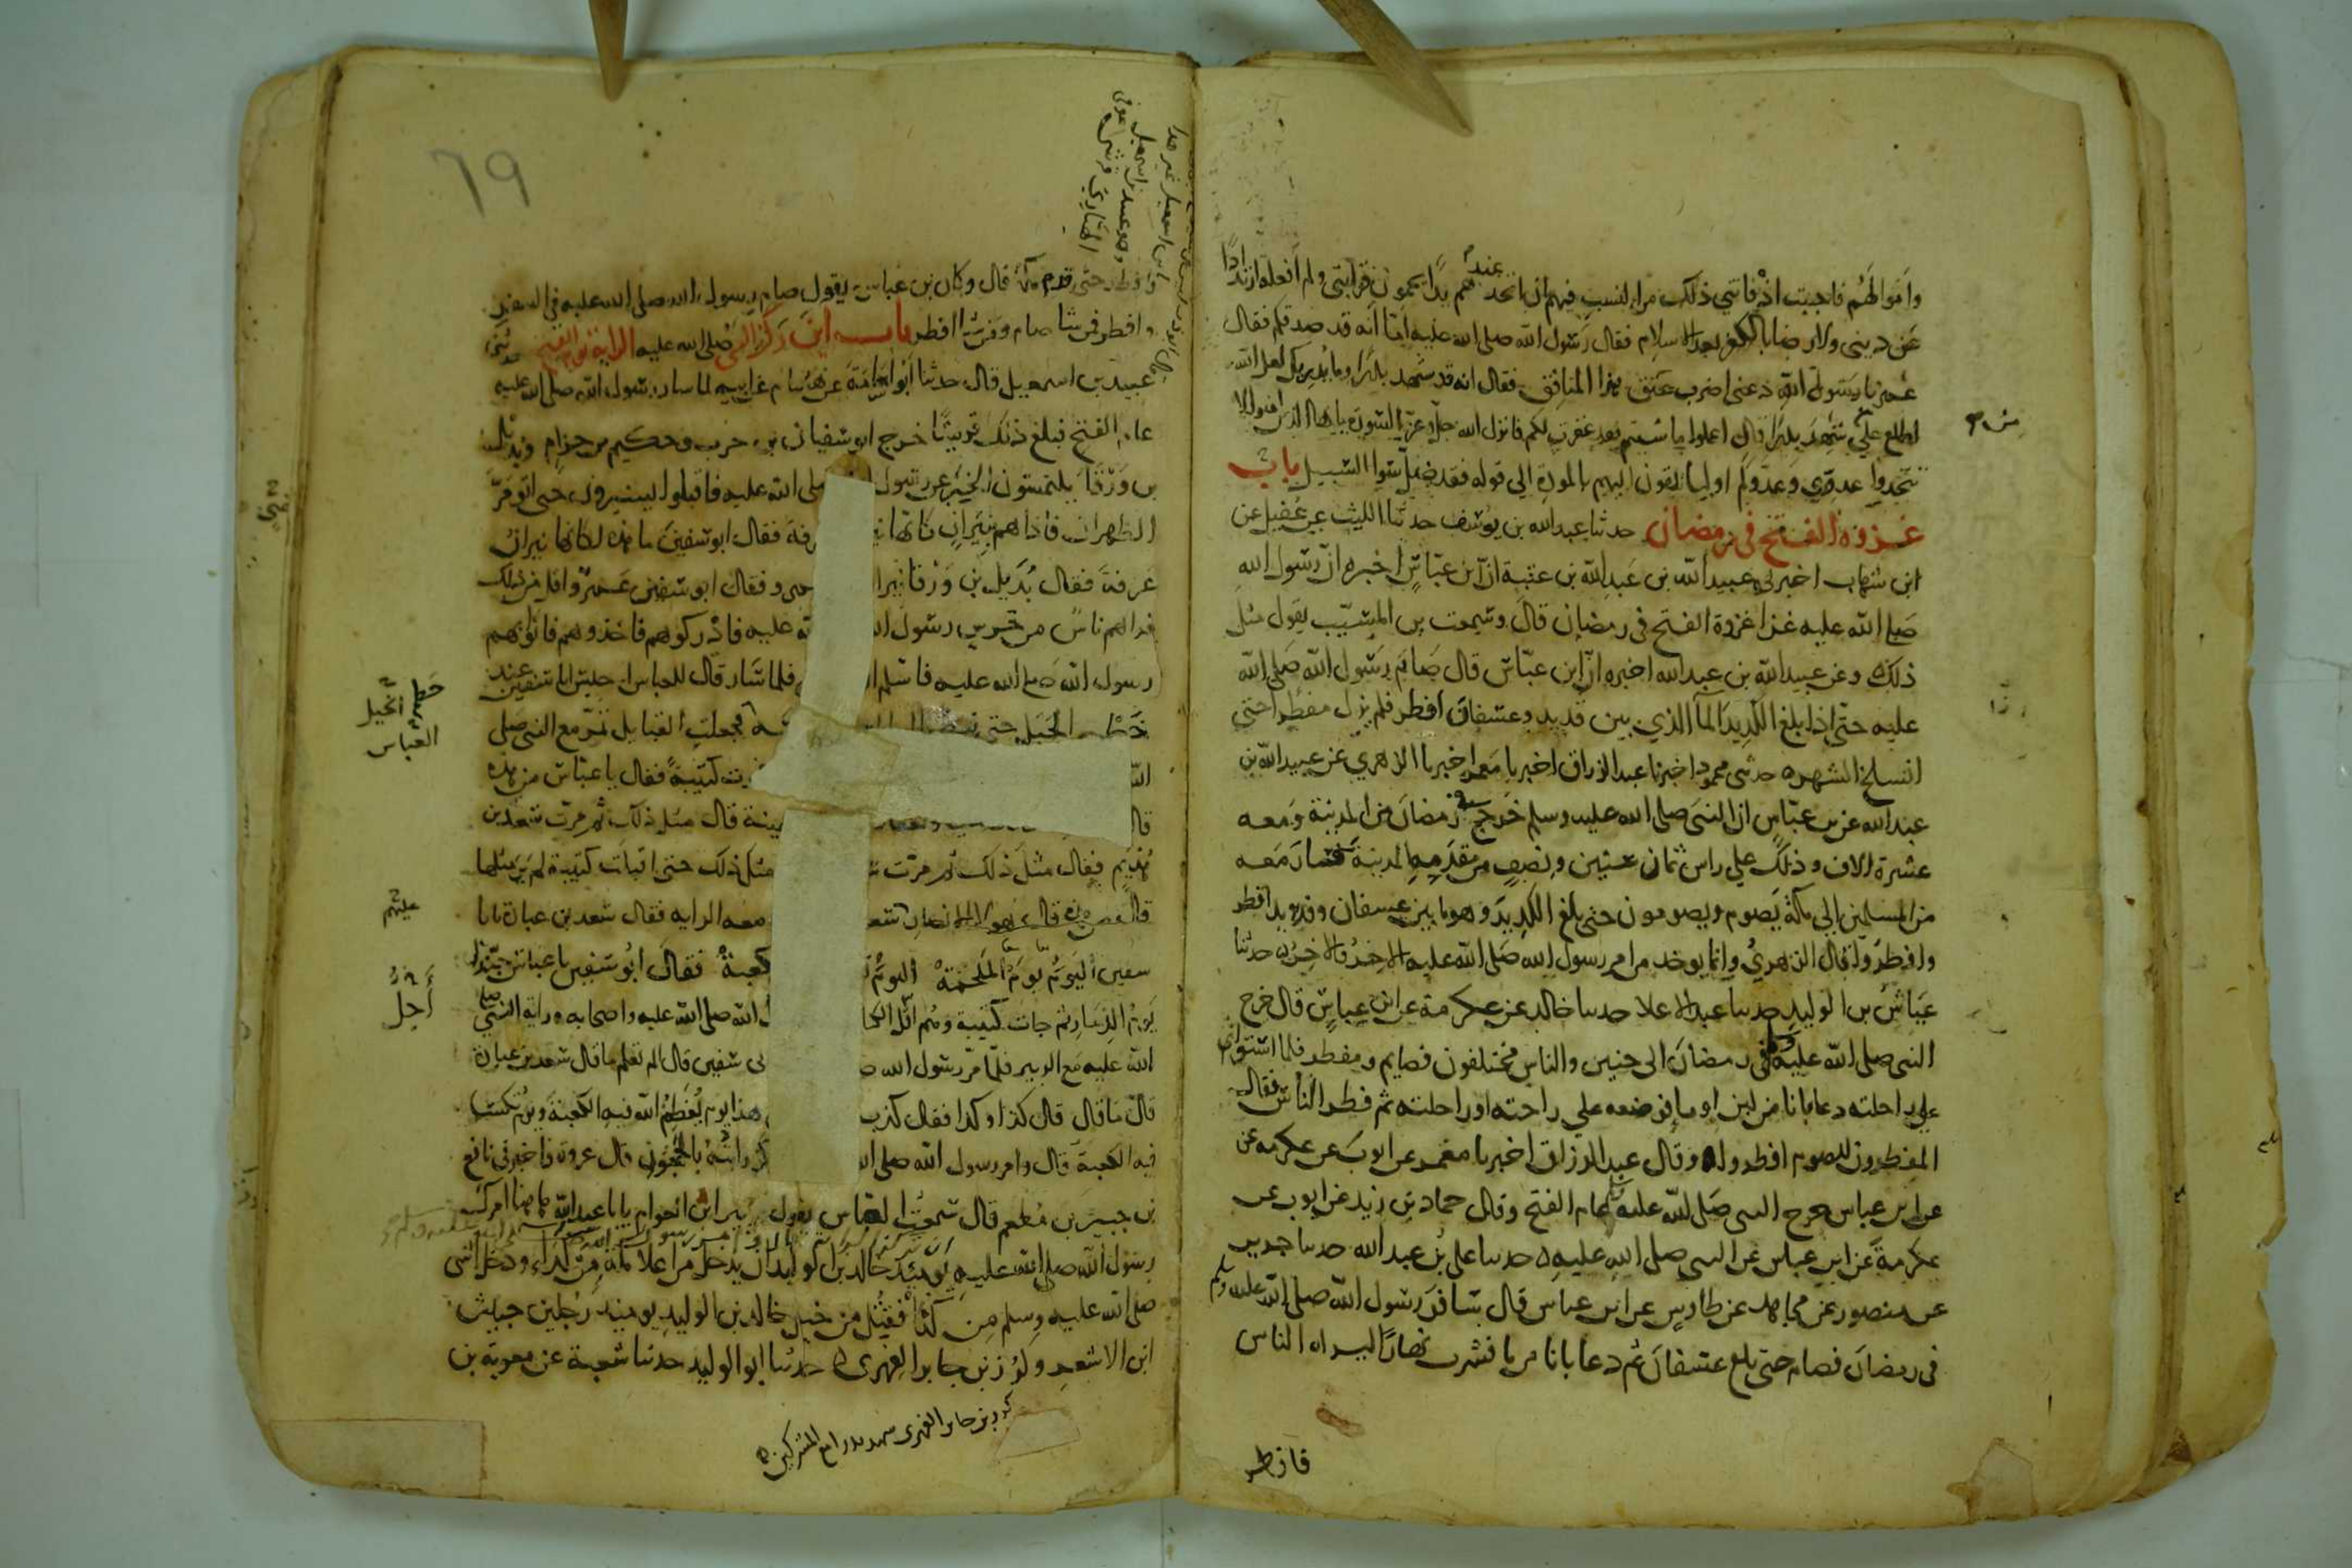 وأموالهم فاحببت اذ فاتني ذلك من النسب فيهم ان اتخذ عندهم يدا يحمون قرابتي ولم افعله ارتدادا
عن ديني ولا رضا بالكفر بعد الاسلام فقال رسول الله صلى الله عليه اما انه قد صدقكم فقال
عمر يا رسول الله دعني اضرب عنق هذا المنافق فقال انه قد شهد بدرا وما يدريك لعل الله
اطلع على من شهد بدرا قال اعملوا ما شيتم فقد غفرت لكم فانزل الله جل وعز السورة يا ايها الذين امنوا لا
تتخذوا عدوي وعدوكم اوليا تلقون اليهم بالمودة الى قوله فقد ضل سوا السبيل باب
غزوة الفتح في رمضان حدثنا عبد الله بن يوسف حدثنا الليث عن عقيل عن
ابن شهاب اخبرني عبيد الله بن عبد الله بن عتبة ان ابن عباس اخبره ان رسول الله
صلى الله عليه غزا غزوة الفتح في رمضان قال وسمعت بن المسيب يقول مثل
ذلك وعن عبيد الله بن عبد الله اخبره ان ابن عباس قال صام رسول الله صلى الله
عليه حتى اذا بلغ الكديد الما الذي بين قديد وعسفان افطر فلم يزل مفطرا حتى
انسلخ الشهر حدثني محمود اخبرنا عبد الرزاق اخبرنا معمر اخبرنا الزهري عن عبيد الله بن
عبد الله عن بن عباس ان النبي صلى الله عليه وسلم خرج في رمضان من المدينة ومعه
عشرة الاف وذلك على راس ثمان سنين ونصف من مقدمه المدينة فسار معه
من المسلمين الى مكة يصوم ويصومون حتى بلغ الكديد وهو ما بين عسفان وقديد افطر
وافطروا قال الزهري وانما يوخذ من امر رسول الله صلى الله عليه الاخر فالاخر حدثنا
عياش بن الوليد حدثنا عبد الاعلا حدثنا خالد عن عكرمة عن ابن عباس قال خرج
النبي صلى الله عليه وسلم في رمضان الى حنين والناس مختلفون فصايم ومفطر فلما استوى
على راحلته دعا بانا من لبن او ما فوضعه على راحته او راحلته ثم فطر الناس فقال
المفطرون للصوم افطروا وقال عبد الرزاق اخبرنا معمر عن ايوب عن عكرمة عن
عن ابن عباس خرج النبي صلى الله عليه وسلم عام الفتح وقال حماد بن زيد عن ايوب عن
عكرمة عن ابن عباس عن النبي صلى الله عليه حدثنا علي بن عبد الله حدثنا جرير
عن منصور عن مجاهد عن طاوس عن ابن عباس قال سافر رسول الله صلى الله عليه وسلم
في رمضان فصام حتى بلغ عسفان ثم دعا بانا من ما فشرب نهارا ليراه الناس
فافطر
٦٩
وافطر حتى قدم مكة قال وكان بن عباس يقول صام رسول الله صلى الله عليه في السفر
وافطر فمن شا صام ومن شا افطر باب اين ركز النبي صلى الله عليه الراية يوم الفتح حدثني
عبيد بن اسمعيل قال حدثنا ابو اسامة عن هشام عن ابيه لما سار رسول الله صلى الله عليه
عام الفتح فبلغ ذلك قريشا خرج ابو سفيان بن حرب وحكيم بن حزام وبديل
بن ورقا يلتمسون الخبر عن رسول صلى الله عليه فاقبلوا يسيرون حتى اتو مر
الظهران فاذا هم بنيران كانها رفة فقال ابو سفين ما هذه لكانها نيران
عرفة فقال بديل بن ورقا نيرا عمرو فقال ابو سفين عمرو اقل من ذلك
فراهم ناس من حرس رسول ا عليه فادركوهم فاخذوهم فاتوا بهم
رسول الله صلى الله عليه فاسلم ا فلما سار قال للعباس احبس ابا سفين عند
الجبل حتى فجعلت القبايل تمر مع النبي صلى
كتيبة فقال يا عباس من هذه
قال مثل ذلك ثم مرت سعد بن
هذيم فقال مثل ذلك ثم مرت مثل ذلك حتى اقبلت كتيبة لم ير مثلها
قال من هذه قال هولا الانصار معه الراية فقال سعد بن عبادة يابا
سفين اليوم يوم الملحمة اليوم كعبة فقال ابو سفين يا عباس حبذا
يوم الذمار ثم جات كتيبة وهم اقل الكتا الله صلى الله عليه واصحابه وراية النبي
الله عليه مع الزبير فلما مر رسول الله سفين قال الم تعلم ما قال سعد بن عبادة
قال ما قال قال كذا وكذا فقال كذب هذا يوم يعظم الله فيه الكعبة ويوم تكسا
فيه الكعبة قال وامر رسول الله صلى ا رايته بالحجون قال عروة فاخبرني نافع
بن جبير بن مطعم قال سمعت العباس يقول للزبير ابن العوام يابا عبد الله هاهنا امرك
رسول الله صلى الله عليه يوميذ خالد بن الوليد ان يدخل من اعلا مكة من كداء ودخل النبي
صلى الله عليه وسلم من كدا فقتل من خيل خالد بن الوليد يوميذ رجلين حبيش
ابن الاشعر وكرز بن جابر الفهري حدثنا ابو الوليد حدثنا شعبة عن معوية بن
خطم الخيل
العباس
عليهم
اجل
كرز بن جابر الفهري شهد بدرا مع المشركين